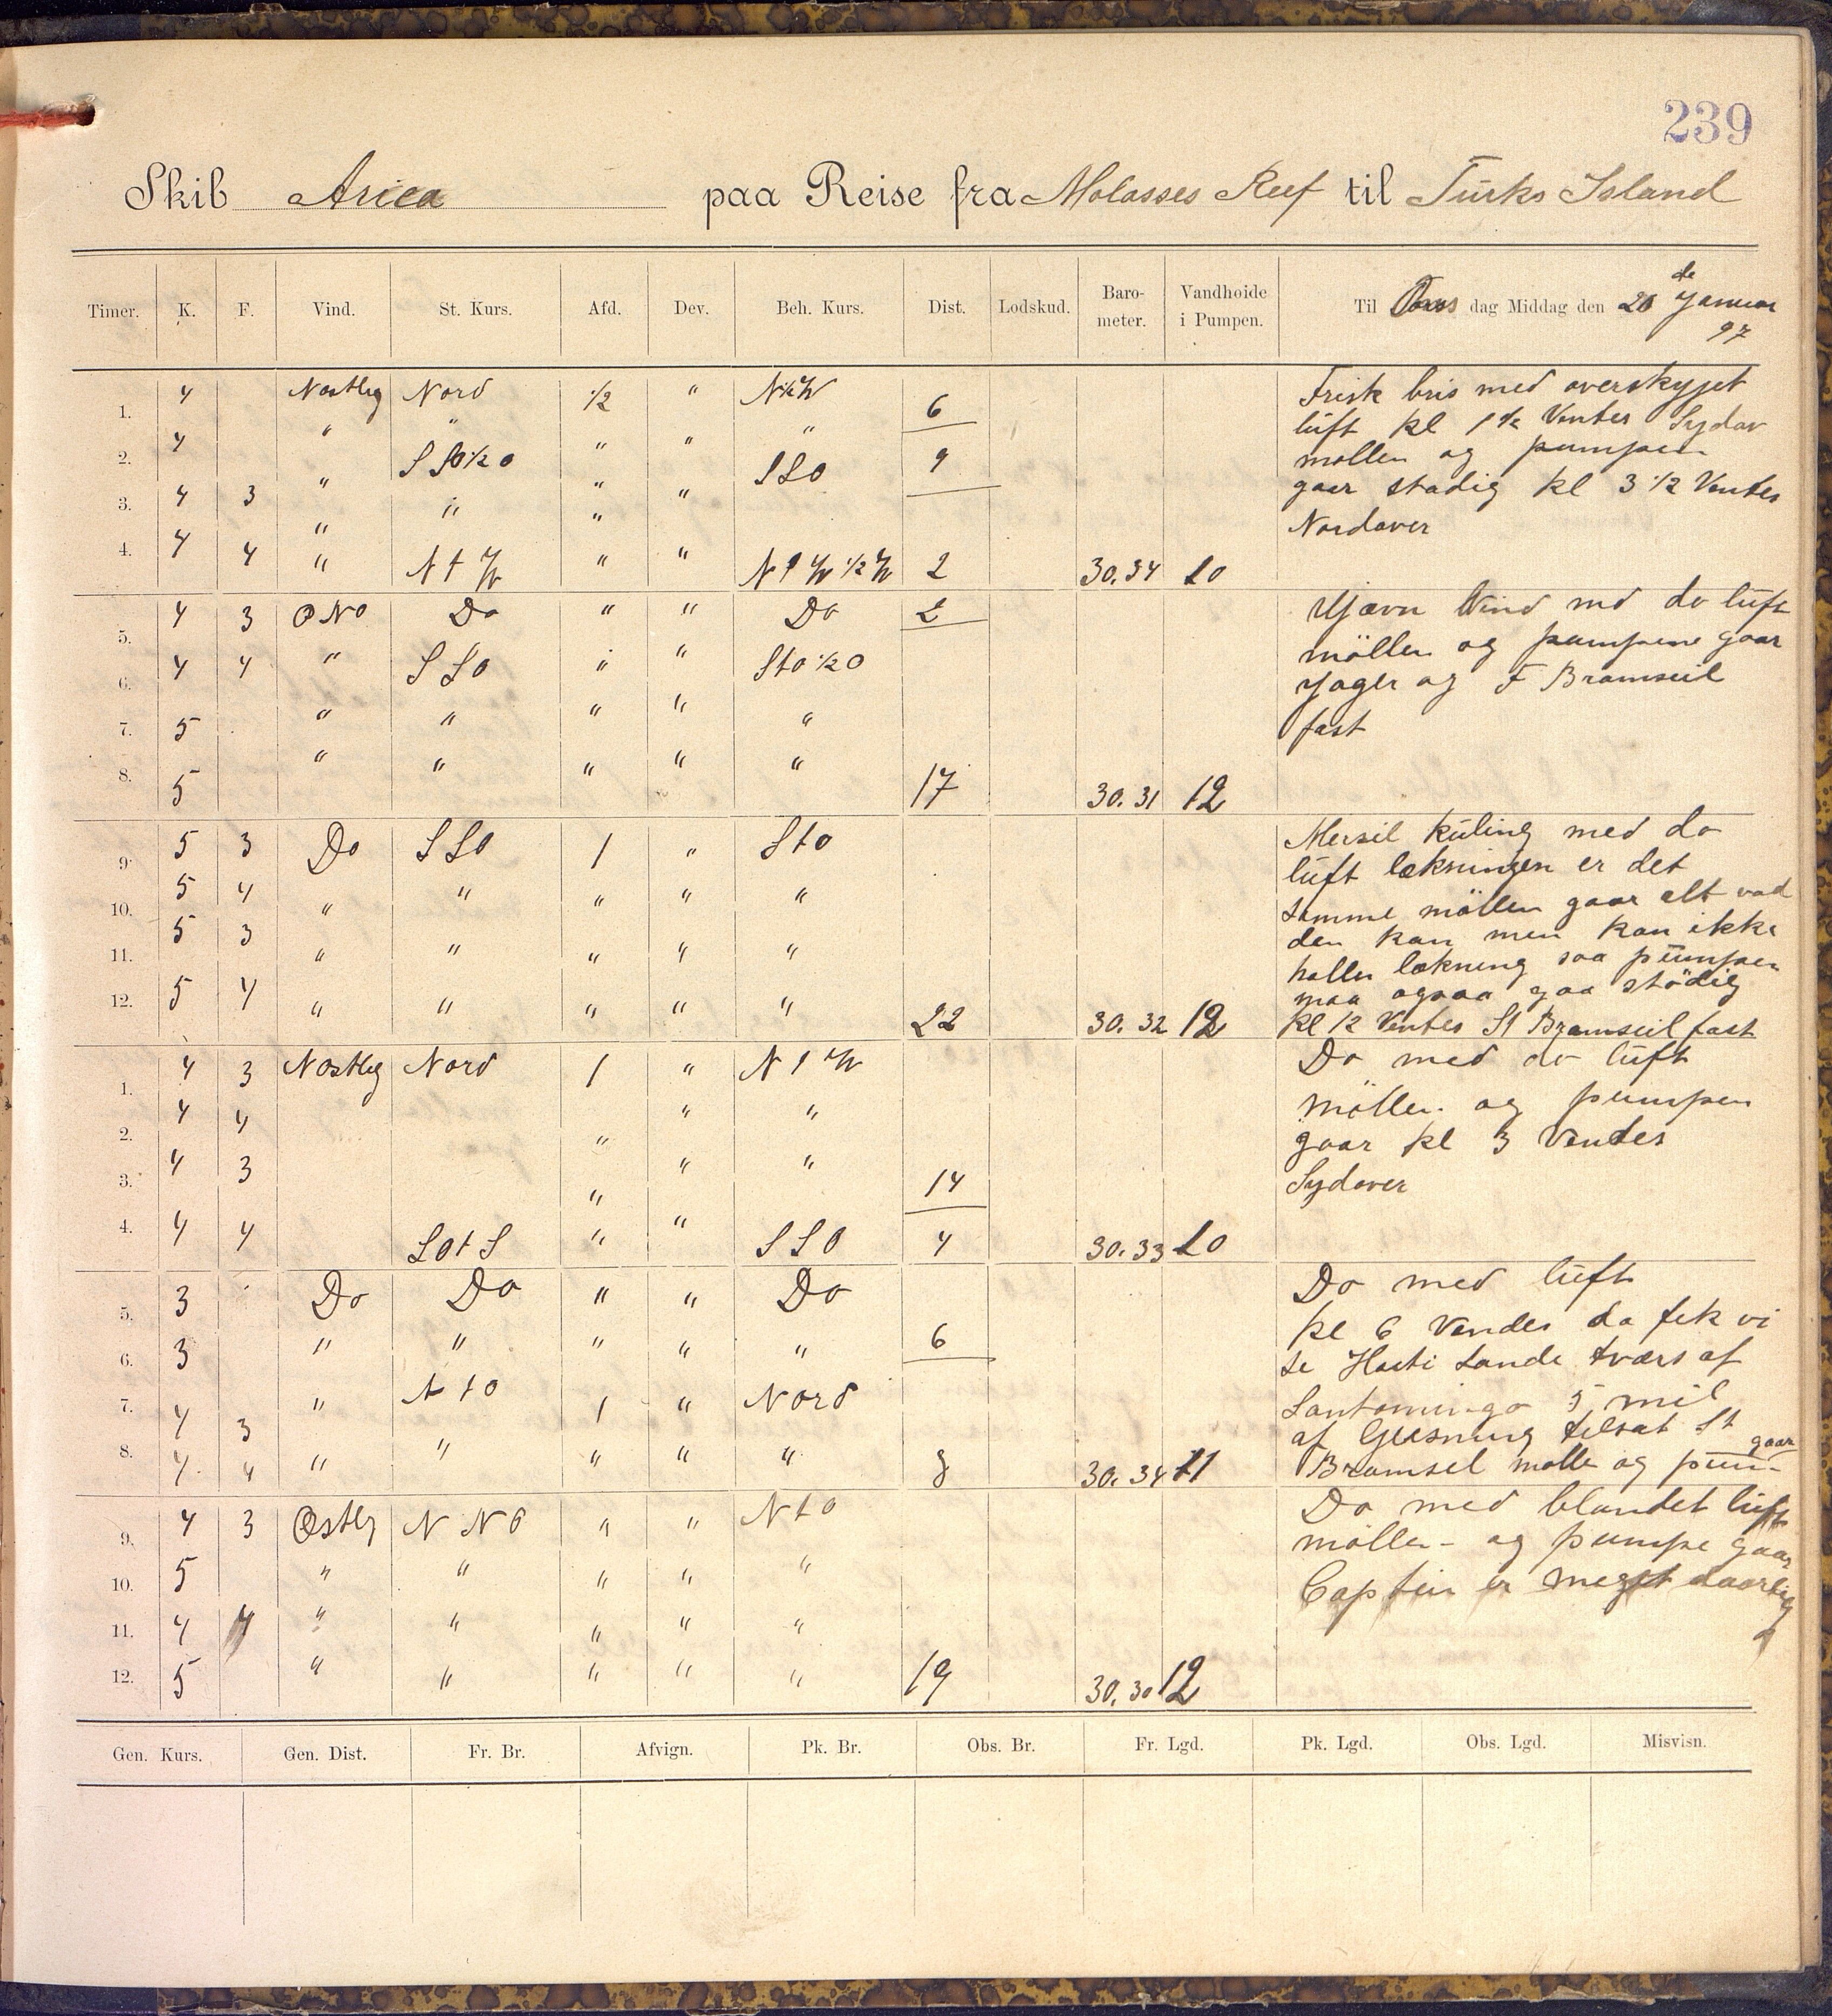 239
Skib Arica paa Reise fra Molasses Reef til Turks Island
Timer. K. F. Vind. St. Kurs. Afd. Dev. Beh. Kurs. Dist. Lodskud. Baro-meter. Vandhoide i Pumpen. Til dag Middag den 20 de Januar 97
1. 4 Nostleg Nord 1/2 " N½W 6
2. 4 " " " " " 9
3. 4 3 " S SO ½ O " " SSO
4. 4 4 " " "
" N t W " " N t W ½ W 2 30.34 10
Frisk bris med overskyjet
luft kl 1½ Ventes Sydov
mollen og pumpen
gaar stadig kl 3 ½ Ventes
Nordover
5. 4 3 ONO Do " " Do 2
6. 4 4 " SSO " " StO½O
7. 5 " " " " "
8. 5 " " " " " 17 30.31 12
Vind md do luft
möllen og pumpene gaar
Jager og F Bramseil
fast
9. 5 3 Do SSO 1 " StO
10. 5 4 " " " " "
11. 5 3 " " " " "
12. 5 4 " " " " " 22 30.32 12
Mersil Kuling med do
luft lækningen er det
samme möllen gaar alt vad
den kan men kan ikke
holle lækning saa pumpen
maa ogsaa gaa stödig
kl 12 Ventes St Bramseil fast
1. 4 3 NOstleg Nord 1 " N t W
2. 4 4 " " "
3. 4 3 " " " 14
4. 4 4 SOtS " " SSO 4 30.33 10
Do med do luft
möllen og pumpen
gaar kl 3 Vendes
Sydover
5. 3 Do Do " " Do
6. 3 " " " " " 6
7. 4 3 " N t O 1 " Nord
8. 4 4 " " " " " 8 30.34 11
Do med luft
kl 6 Vendes da fek vi
se Haiti Lande tværs af
Santomingo 5 mil
af Giesning tilsat St
Bramsel molle og pum- gaar
9. 4 3 Ostleg N NO " " N t O
10. 5 " " " " "
11. 4 4 " " " " "
12. 5 " " " " " 19 30.30 12
Do med blandet luft
möllen - og pumpe gaar
Captein er meget daarlig
Gen. Kurs. Gen. Dist. Fr. Br. Afvign. Pk. Br. Obs. Br. Fr. Lgd. Pk. Lgd. Obs. Lgd. Misvisn.